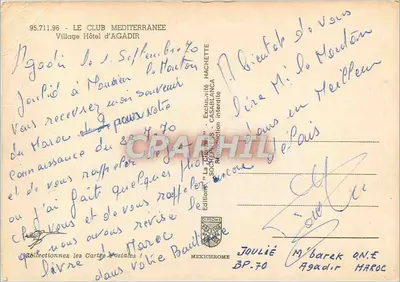 95.711.96 - LE CLUB MEDITERRANEE
Village Hôtel d'AGADIR
Agadir le 1 Septembre 70
Joulié à Monsieur
le Mouton
vous recevrez mon souvenir
du Maroc pour votre
connaissance du
et de vous rappeler
ou j'ai fait quelques photos
chez vous et de vous rappeler
que nous avons revisé le
livre du Maroc
dans votre
A bientôt de vous
lire Mr le Mouton
dans un Meilleur
délais
Editions "La Cigogne" - Exclusivité HACHETTE
SOCHEPRESS - CASABLANCA
Reproduction interdite
CPAPHIL
Collectionnez les Cartes Postales
MEXICHROME
JOULIÉ M'barek O.N.E
BP.70 Agadir MAROC